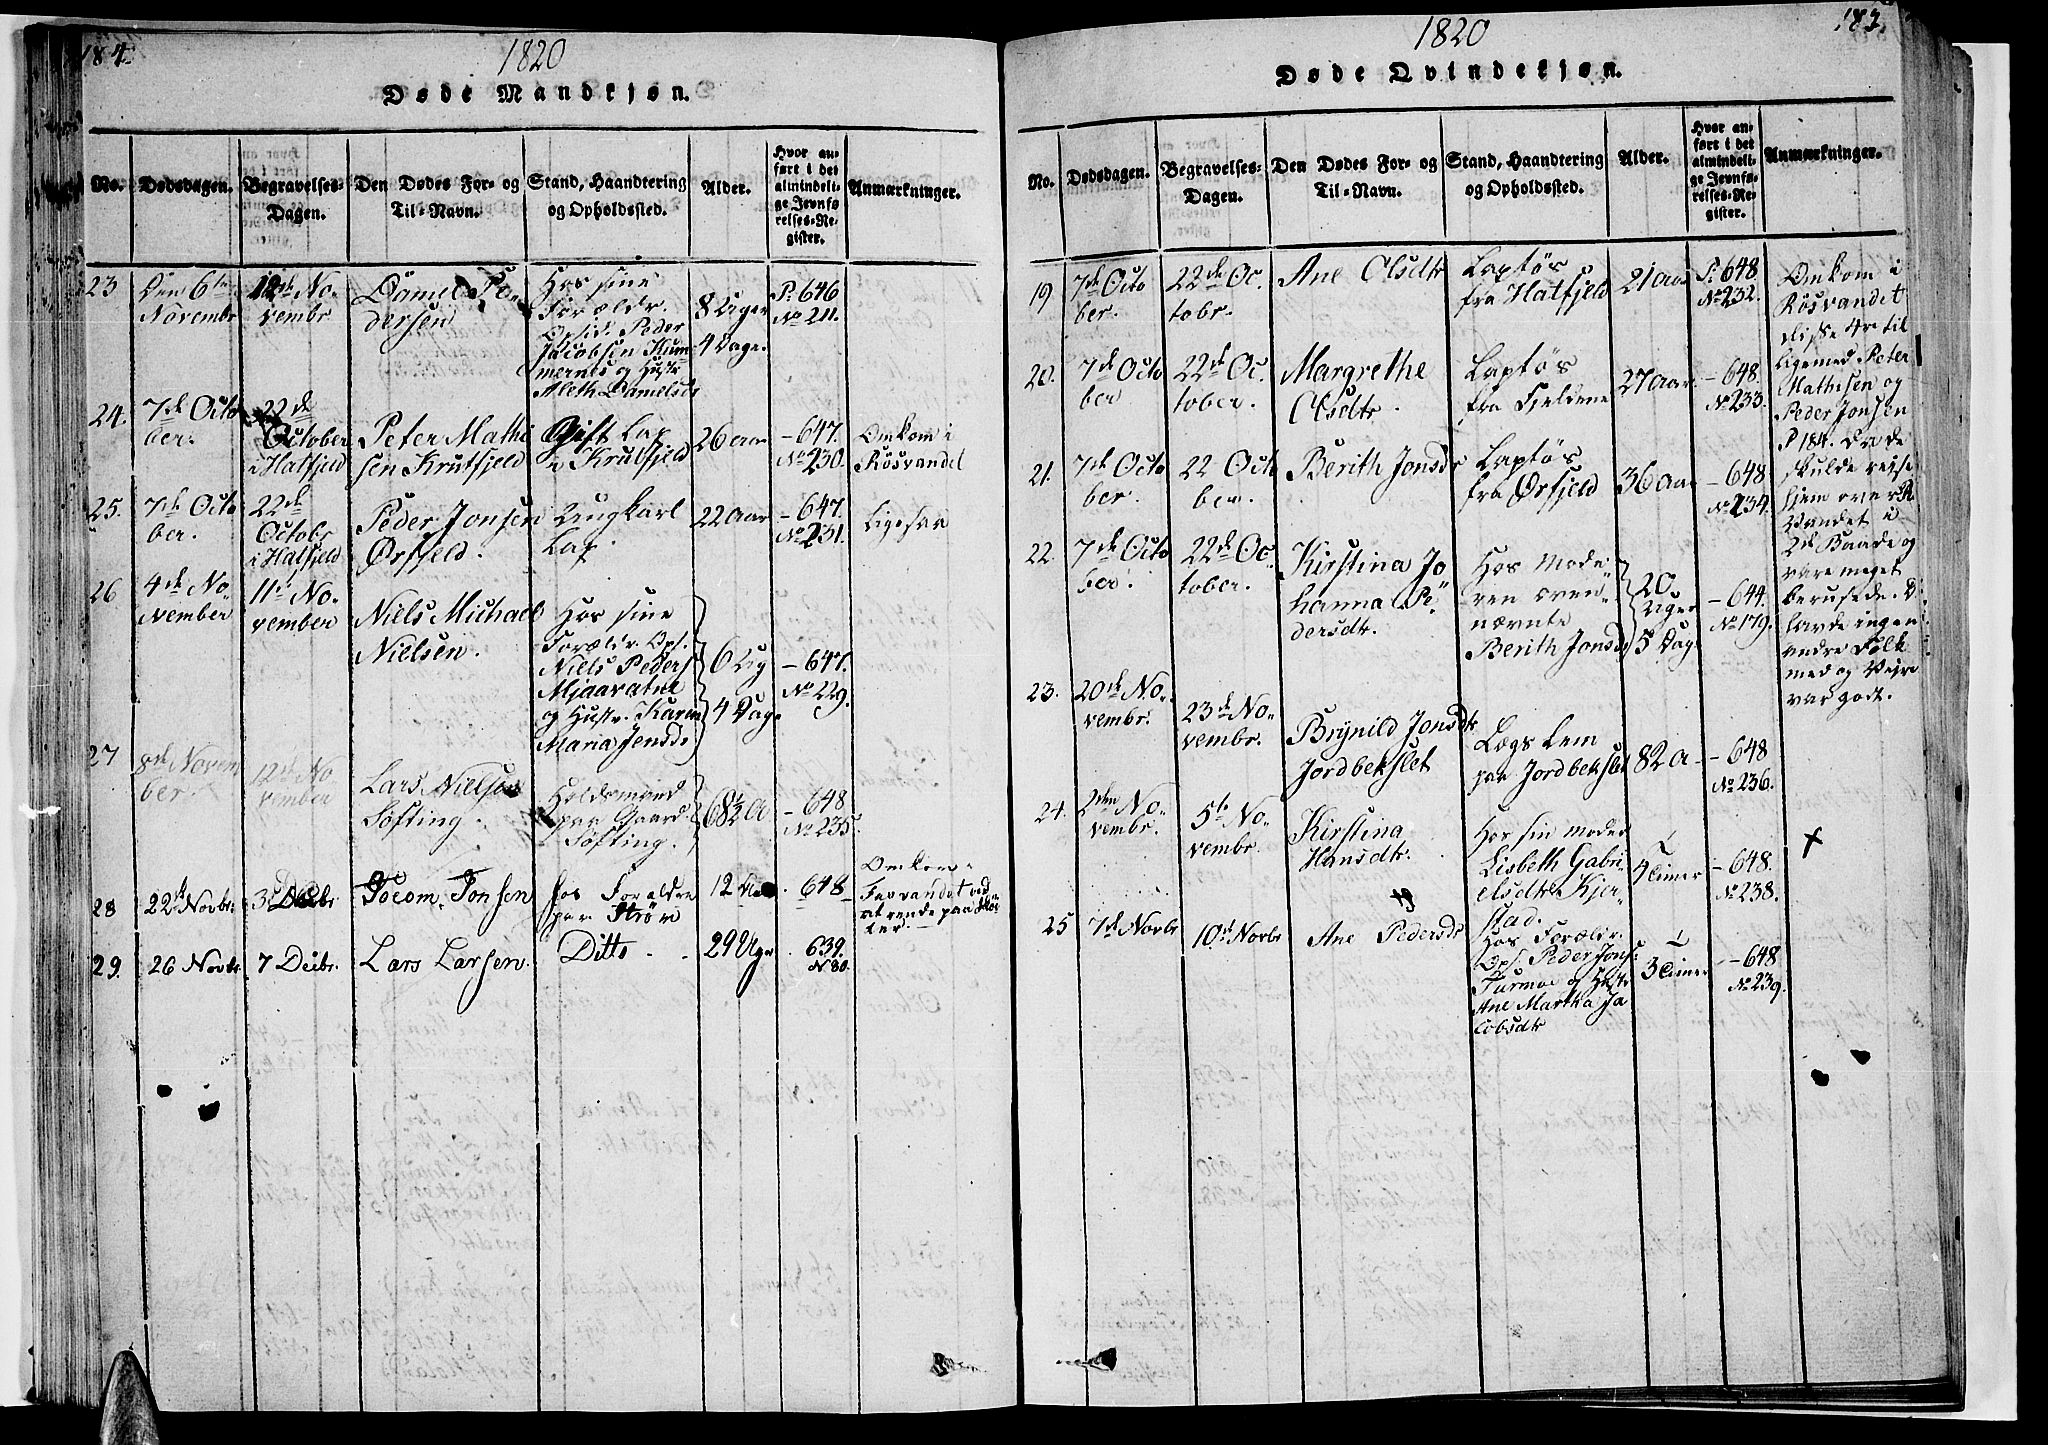 184
1820
Døde Mandkjøn.
No.
Dødsdagen.
Begravelses-
Dagen.
Den Dødes For- og
Til-Navn.
Stand, Haandtering
og Opholdssted.
Alder.
Hvor an-
ført i det
almindeli-
ge Jevnfø-
relses-Re-
gister.
Anmærkninger.
23
Den 6te
Novembr
12te No-
vembr
Daniel Pe-
dersen
Hos sine
Forældr.
Opsid. Peder
Jacobsen Kum-
mernes og Hustr
Aleth Danielsdr
8 Uger
4 Dage.
P. 646
No 211.
24.
7de Octo
ber.
22de
October
i Hatfjeld
Peter Mathi
sen Krutfjeld
Gift Lap
i Krutfjeld
26 Aar
- 647.
No 230.
Omkom i
Røsvandet
25.
7de Octo
ber.
22de
Octobr
i Hatfjeld
Peder Jonsen
Ørfjeld.
Ungkarl
Lap.
22 Aar
- 647.
No 231.
Ligesaa
26
4de No-
vember
11te No-
vember
Niels Michael
Nielsen.
Hos sine
Forældr. Ops.
Niels Peders.
Mjaavatne
og Hustr. Karen
Maria Jensdr
6 Ug
4 Dage
- 647.
No 229.
27
8de Novem
ber.
12te No-
vember
Lars Nielsen
Søfting.
Holdsmand
paa Gaard.
Søfting.
68½ A
- 648
No 235.
28
22de Novbr.
3de Decbr
Tocom. Jonsen
hos Forældre
paa
12 Aar
. 648
Omkom i
Favandet ved
at rende paa Skø-
ter.
29.
26 Novbr.
7 Decbr.
Lars Larsen.
Ditto
29 Uger
. 639.
N 80.
1820
183.
Døde Qvindekjøn.
No.
Dødsdagen.
Begravelses-
Dagen.
Den Dødes For- og
Til-Navn.
Stand, Haandtering
og Opholdssted.
Alder.
Hvor an-
ført i det
almindeli-
ge Jevnfø-
relses-Re-
gister.
Anmærkninger.
19
7de Octo
ber.
22de Oc.
tobr.
Ane Olsdtr
Laptøs
fra Hatfjeld
21 Aar
P. 648
No 232.
Omkom i
Røsvandet
disse 4re til
ligemed Peter
Mathisen og
Peder Jonsen
P 184. Da de
skulde reise
hjem over R
Vandet i
2de Baade og
vare meget
berusede. D
havde ingen
andre Folk
med og Veire
var godt.
20.
7de Octo
ber
22de Oc.
tober.
Margrethe
Olsdtr.
Laptøs
fra Fjeldene
27 Aar.
- 648.
No 233.
21.
7de Octo
ber.
22 Octo
ber.
Berith Jonsdr
Laptøs
fra Ørfjeld
36 Aar
- 648
No 234.
22.
7de Octo
ber.
22de Oc.
tober.
Kirstina Jo
hanna Pe
dersdtr.
Hos Mode
ren oven-
nævnte
Berith Jonsdr
20
Uger
5 Dag
- 644.
No 179.
23.
20de No-
vembr.
23de No-
vembr.
Brynild Jonsdtr
Jordbekslet
Lægs Lem
paa Jordbekslet
82 A-
- 648
No 236.
24.
2den No-
vembr.
5te No-
vembr.
Kirstina
Hansdtr.
Hos sin moder
Lisbeth Gabri-
elsdtr Kjer-
stad.
4 Timer
- 648.
No 238.
25
7de Novbr
10de Novbr
Ane Pedersdr
Hos Forældr.
Ops. Peder Jons.
Turmoe og Hustr
Ane Martha Ja
cobsdtr
3 Timer
- 648
No 239.